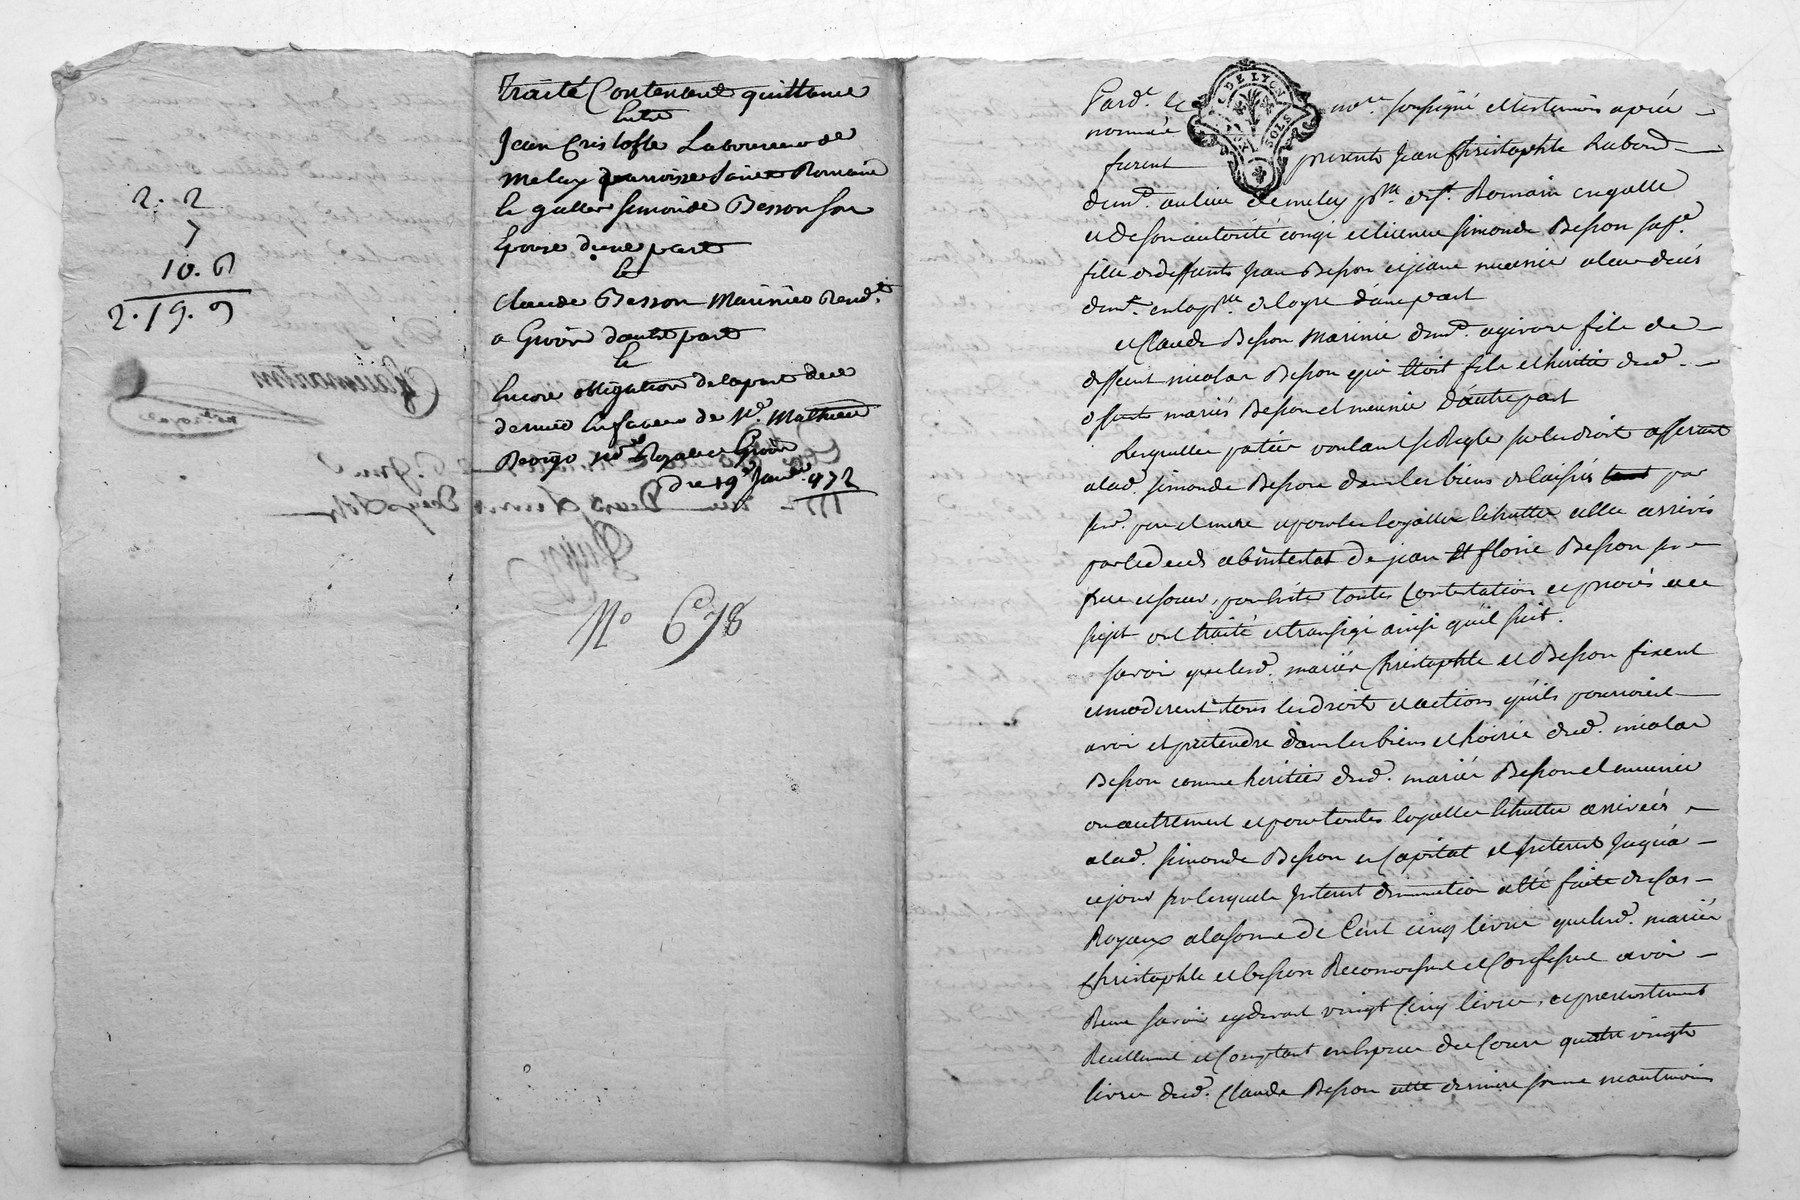 2. 2
7
10. 6
2. 19. 9
Traité Contenant quittance
Entre
Jean Cristofle Laboureur de
Melay parroisse Saint Romain
le galler Simonde Besson son
Epouse d'une part
Et
Claude Besson Marinier Rend.t
a Givors d'autre part
Et
Encore obligation de la part de ce
dernier En faveur de Me. Mathieu
Bevigo no.re Royal a Givors
du 19 Janv.
No 678
C. DE LYON
SOLS
Pard.t le no.re soussigné et les temoins après
nommés
furent presents Jean Christophle Labour.
dem.t au lieu de melay p.sse de St. Romain en galle
et de son autorité congé et licence Simonde Besson sa fe.
fille de deffunts Jean Besson et jeane meunie a leur decès
dem.t en la p.sse de loyre d'une part
et Claude Besson Marinie dem.t a givors fils de
deffunt nicolas Besson qui Etoit fils et heritie desd.
deffunts mariés Besson et meunie D'autre part
Lesquelles parties voulant se Regle sur les droits afferants
a lad. Simonde Besson dans les biens delaissés par
sesd. pere et mere et pour les loyalles Echuttes a elle arrivés
par le decès ab intestat de jean et florie Besson ses
frere et soeur, pour Evite toutes Contestations et procès a ce
sujet ont traité et transigé ainsi qu'il suit.
Savoir que lesd. mariés Christophle et Besson fixent
et moderent tous les droits et actions qu'ils pourroient
avoir et pretendre dans les biens et hoirie dud. nicolas
Besson comme héritier desd. mariés Besson et meunie
ou autrement et pour toutes loyalles Echuttes arrivées
a lad. Simonde Besson en Capital et Interets Jusqu'a
ce jour sur lesquels Interets diminution a Eté faite des Cas
Royaux a la somme de Cent cinq livres que lesd. mariés
Christophle et besson Reconnoissent et Confessent avoir
Reçu savoir cy devant vingt Cinq livres, et presentement
Reellement et Comptant en Espece de Cours quatre vingts
livres dud. Claude Besson cette derniere somme neantmoins